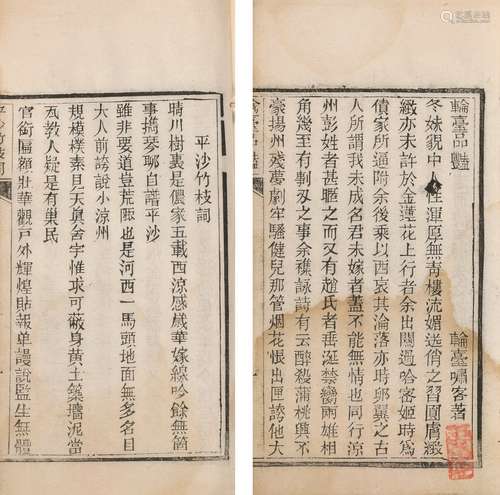 輪臺品豔
輪臺嘯客著
冬妹貌中人性渾厚無靑樓流媚送俏之習圓膚緩
緻亦未許於金蓮花上行者余出關過哈密姬時爲
債家所逼附余後乘以西哀其淪落亦時卵翼之古
人所謂我未成名君未嫁者蓋不能無情也同行涼
州彭姓者甚暱之而又有趙氏者垂涎禁臠兩雄相
角幾至有剚刃之事余襍詠詩有云醉殺蒲桃興不
豪揚州殘夢劇牢騷健兒那管烟花恨出匣誇他大
平沙竹枝詞
晴川樹裏是儂家五載西涼感歲華嫁線吟餘無箇
事撝琴聊自譜平沙
雖非要道豈荒陬也是河西一馬頭地面無多名目
大人前誇說小涼州
規模樸素見天眞舍宇惟求可蔽身黄土築墻泥當
瓦教人疑是有巢民
官衙匾額壯華觀戸外輝煌貼報单謾說監生無體
平沙竹枝詞